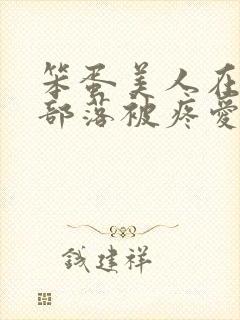 笨蛋美人在
部落被疼愛
钱建祥